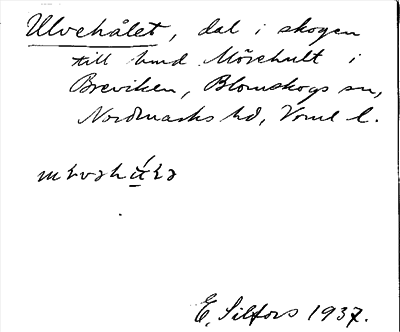 Ulvehålet, dal i skogen
till hmd Mörehult i
Breviken, Blomskogs sn,
Nordmarks hd, Vrml l.
E. Silfors 1937.